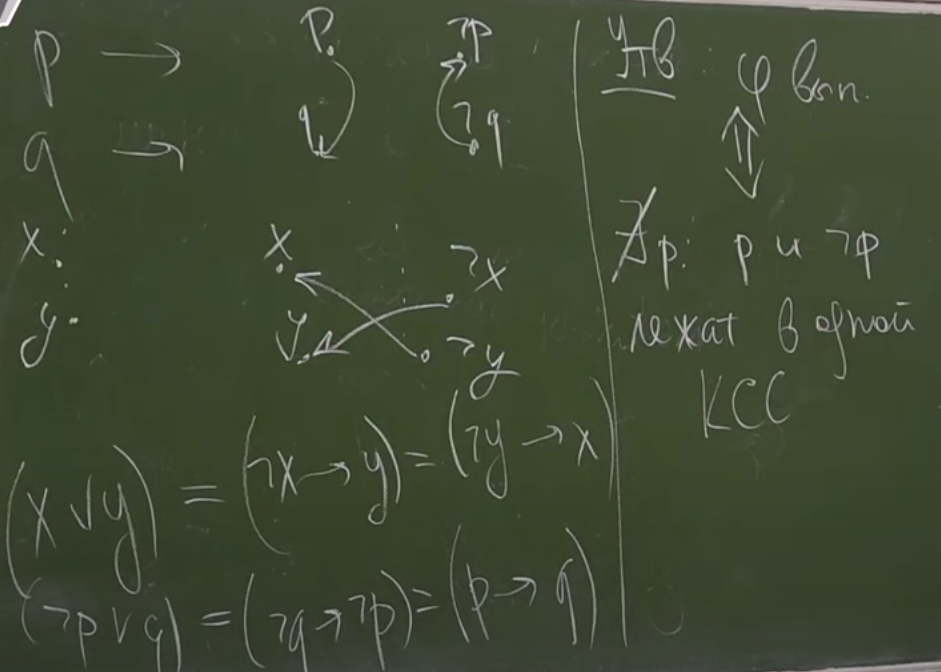 p → p. ¬p
q → q ¬q
x. x ¬x
y. y ¬y
(x ∨ y) = (¬x → y) = (¬y → x)
(¬p ∨ q) = (¬q → ¬p) = (p → q)
Утв : φ вып.
⇕
∄ p: p и ¬p
лежат в одной
КСС